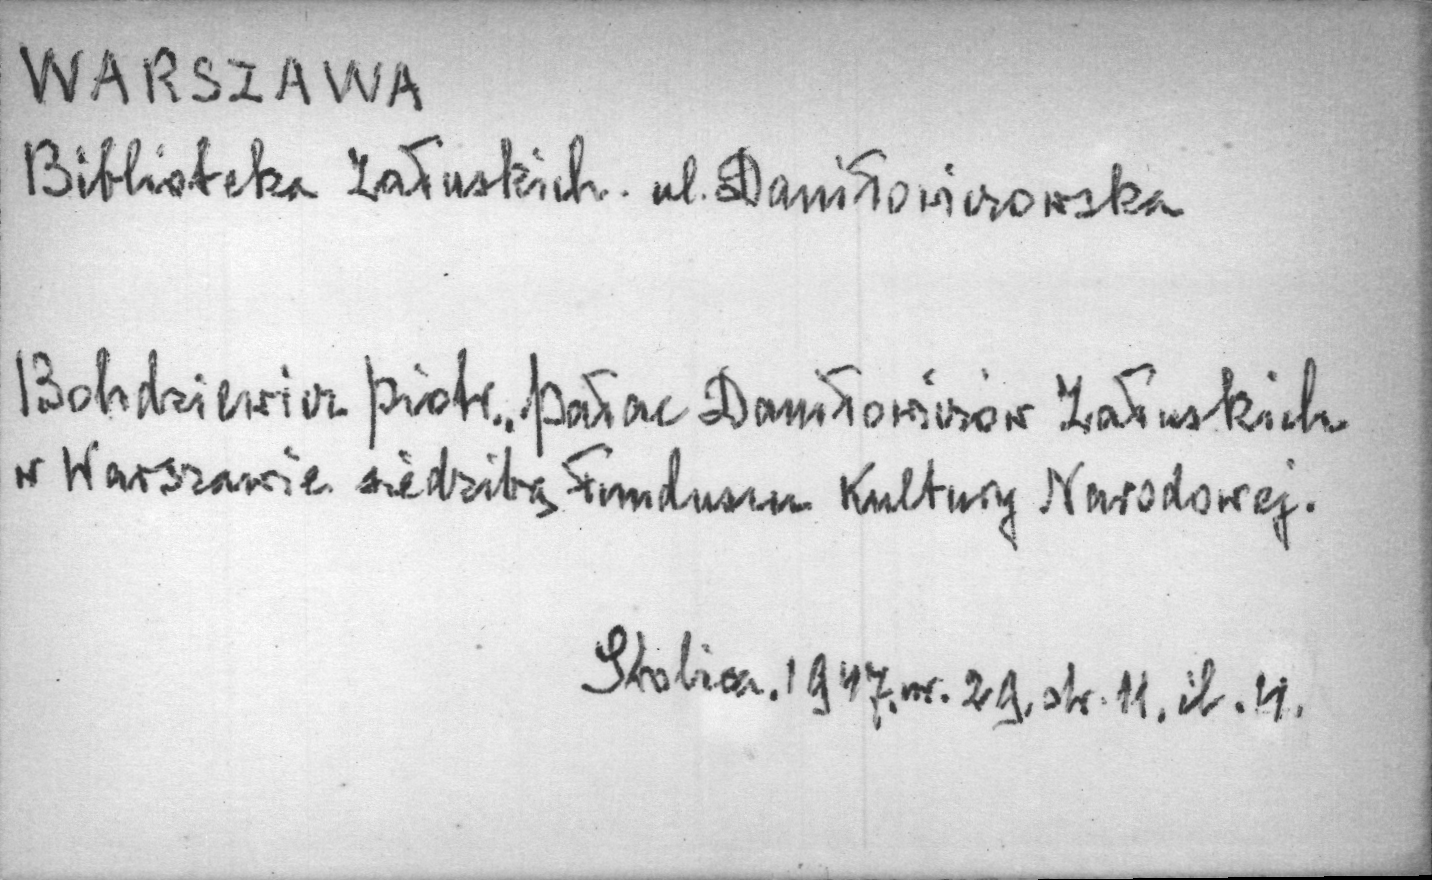 WARSZAWA
Biblioteka Załuskich. ul. Daniłowiczowska
Bohdziewicz Piotr., Pałac Daniłowiczów Załuskich
w Warszawie siedzibą Funduszu Kultury Narodowej.
Stolica. 1947. nr. 29, str. 11, il. 4.